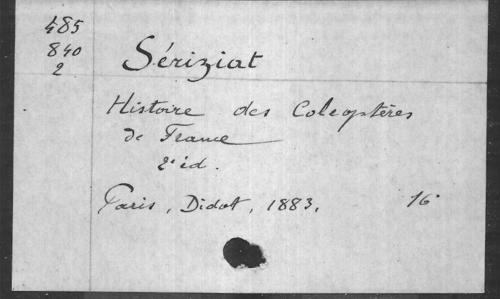 485
840
2
Sériziat
Histoire des Coleoptères
de France
2e éd.
Paris, Didot, 1883. 16°